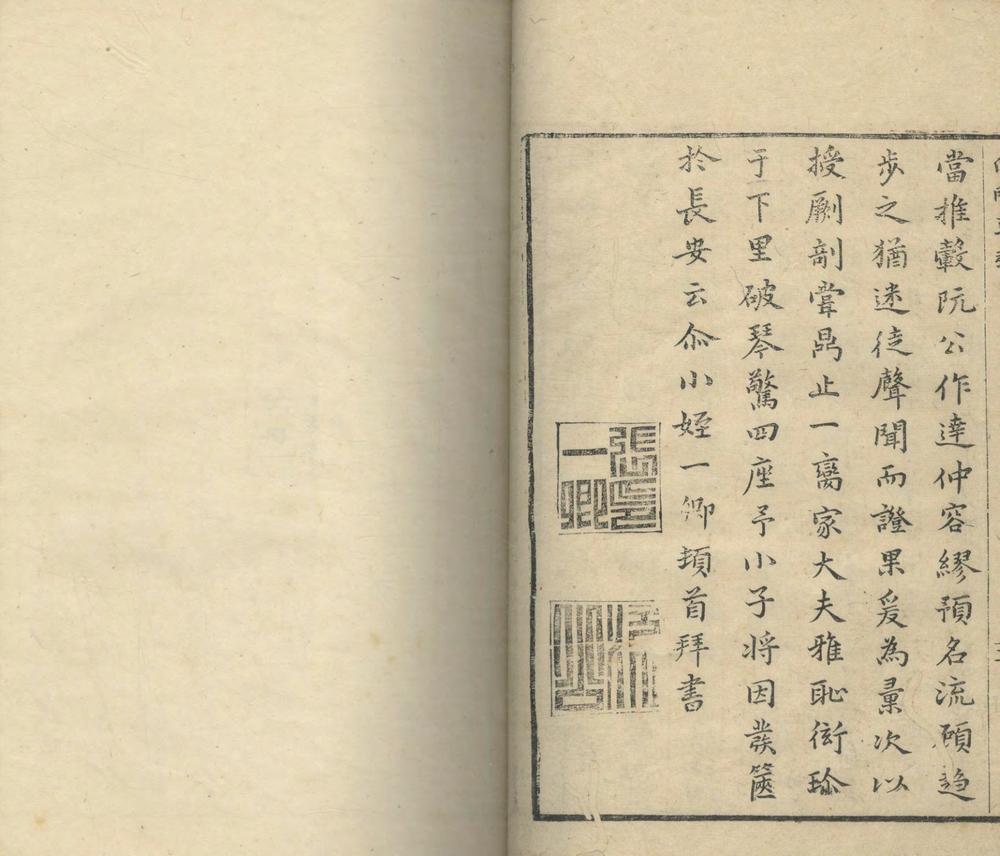 當推轂阮公作達仲容繆預名流顧趋
步之猶迷徒聲聞而證果爰為彚次以
授劂剞嘗鼎止一臠家大夫雅恥衒珍
于下里破琴驚四座予小子将因發篋
扵長安云尒小姪一卿頓首拜書
張一卿